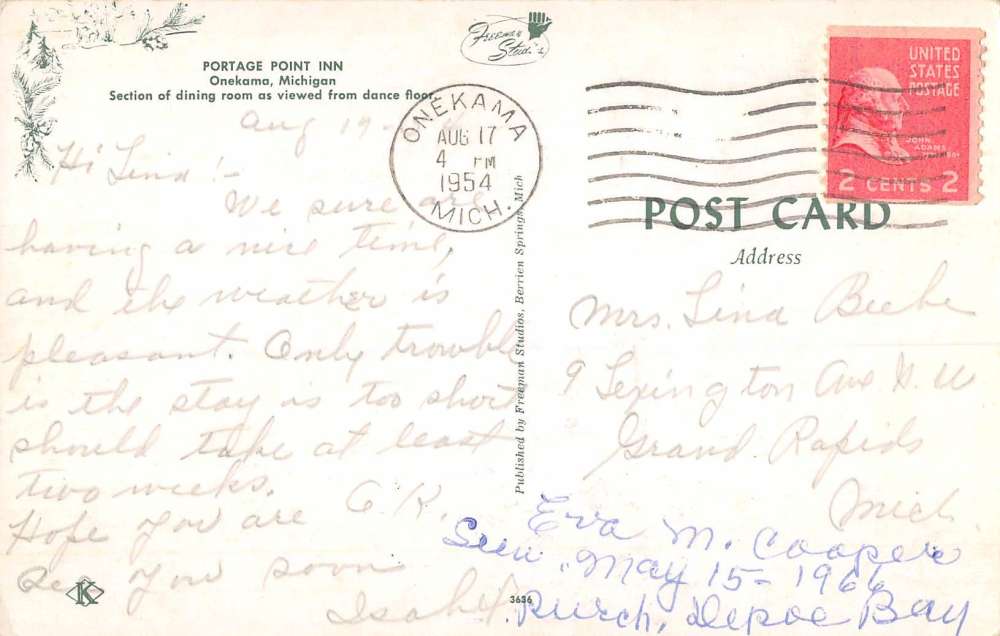 PORTAGE POINT INN
Onekama, Michigan
Section of dining room as viewed from dance floor
Freeman
Studios
ONEKAMA
AUG 17
4 PM
1954
MICH.
UNITED
STATES
POSTAGE
JOHN
ADAMS
2 CENTS 2
POST CARD
Address
Aug 17-
Hi Lina!-
We sure are
having a nice time,
and the weather is
pleasant. Only trouble
is the stay is too short
should take at least
two weeks.
Hope you are O.K.
See you soon
Isabel
Published by Freeman Studios, Berrien Springs, Mich
Mrs. Lina Beebe
9 Lexington Ave N.W
Grand Rapids
Mich.
Eva M. Cooper
Sun. May 15-1966
Depoe Bay
K
3636